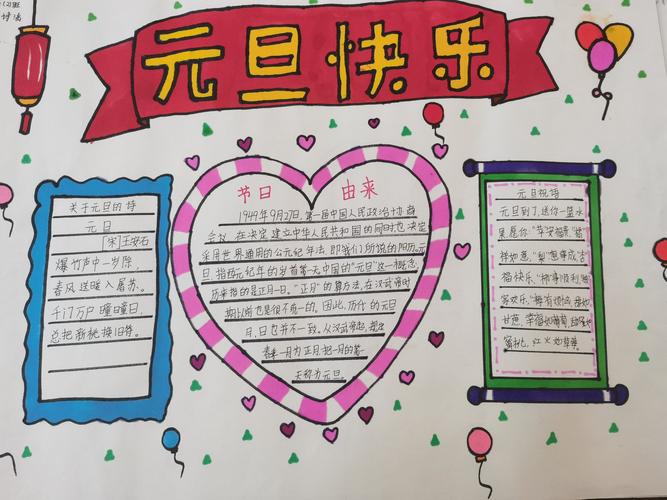 (2)班
诗涵
元旦快乐
关于元旦的诗
元日
[宋]王安石
爆竹声中一岁除,
春风送暖入屠苏。
千门万户曈曈日,
总把新桃换旧符。
节日 由来
1949年9月27日,第一届中国人民政治协商
会议,在决定建立中华人民共和国的同时也决定
采用世界通用的公元纪年法,即我们所说的阳历。元
旦指公元纪年的岁首第一天中国的“元旦”这一概念,
历来指的是正月一日。“正月”的算法,在汉武帝时
期以前也是很不统一的。因此,历代的元旦
月,日也并不一致。从汉武帝起,规定
春季一月为正月,把一月的第一
天称为元旦。
元旦祝语
元旦到了,送你一篮水
果,愿你“苹安福景”,
祥如意,“梨”想享成“吉
福快乐,“柳事顺利,
客欢乐,“梅有烦恼
甘蔗,幸福如葡萄,
蜜桃,红火如草莓。